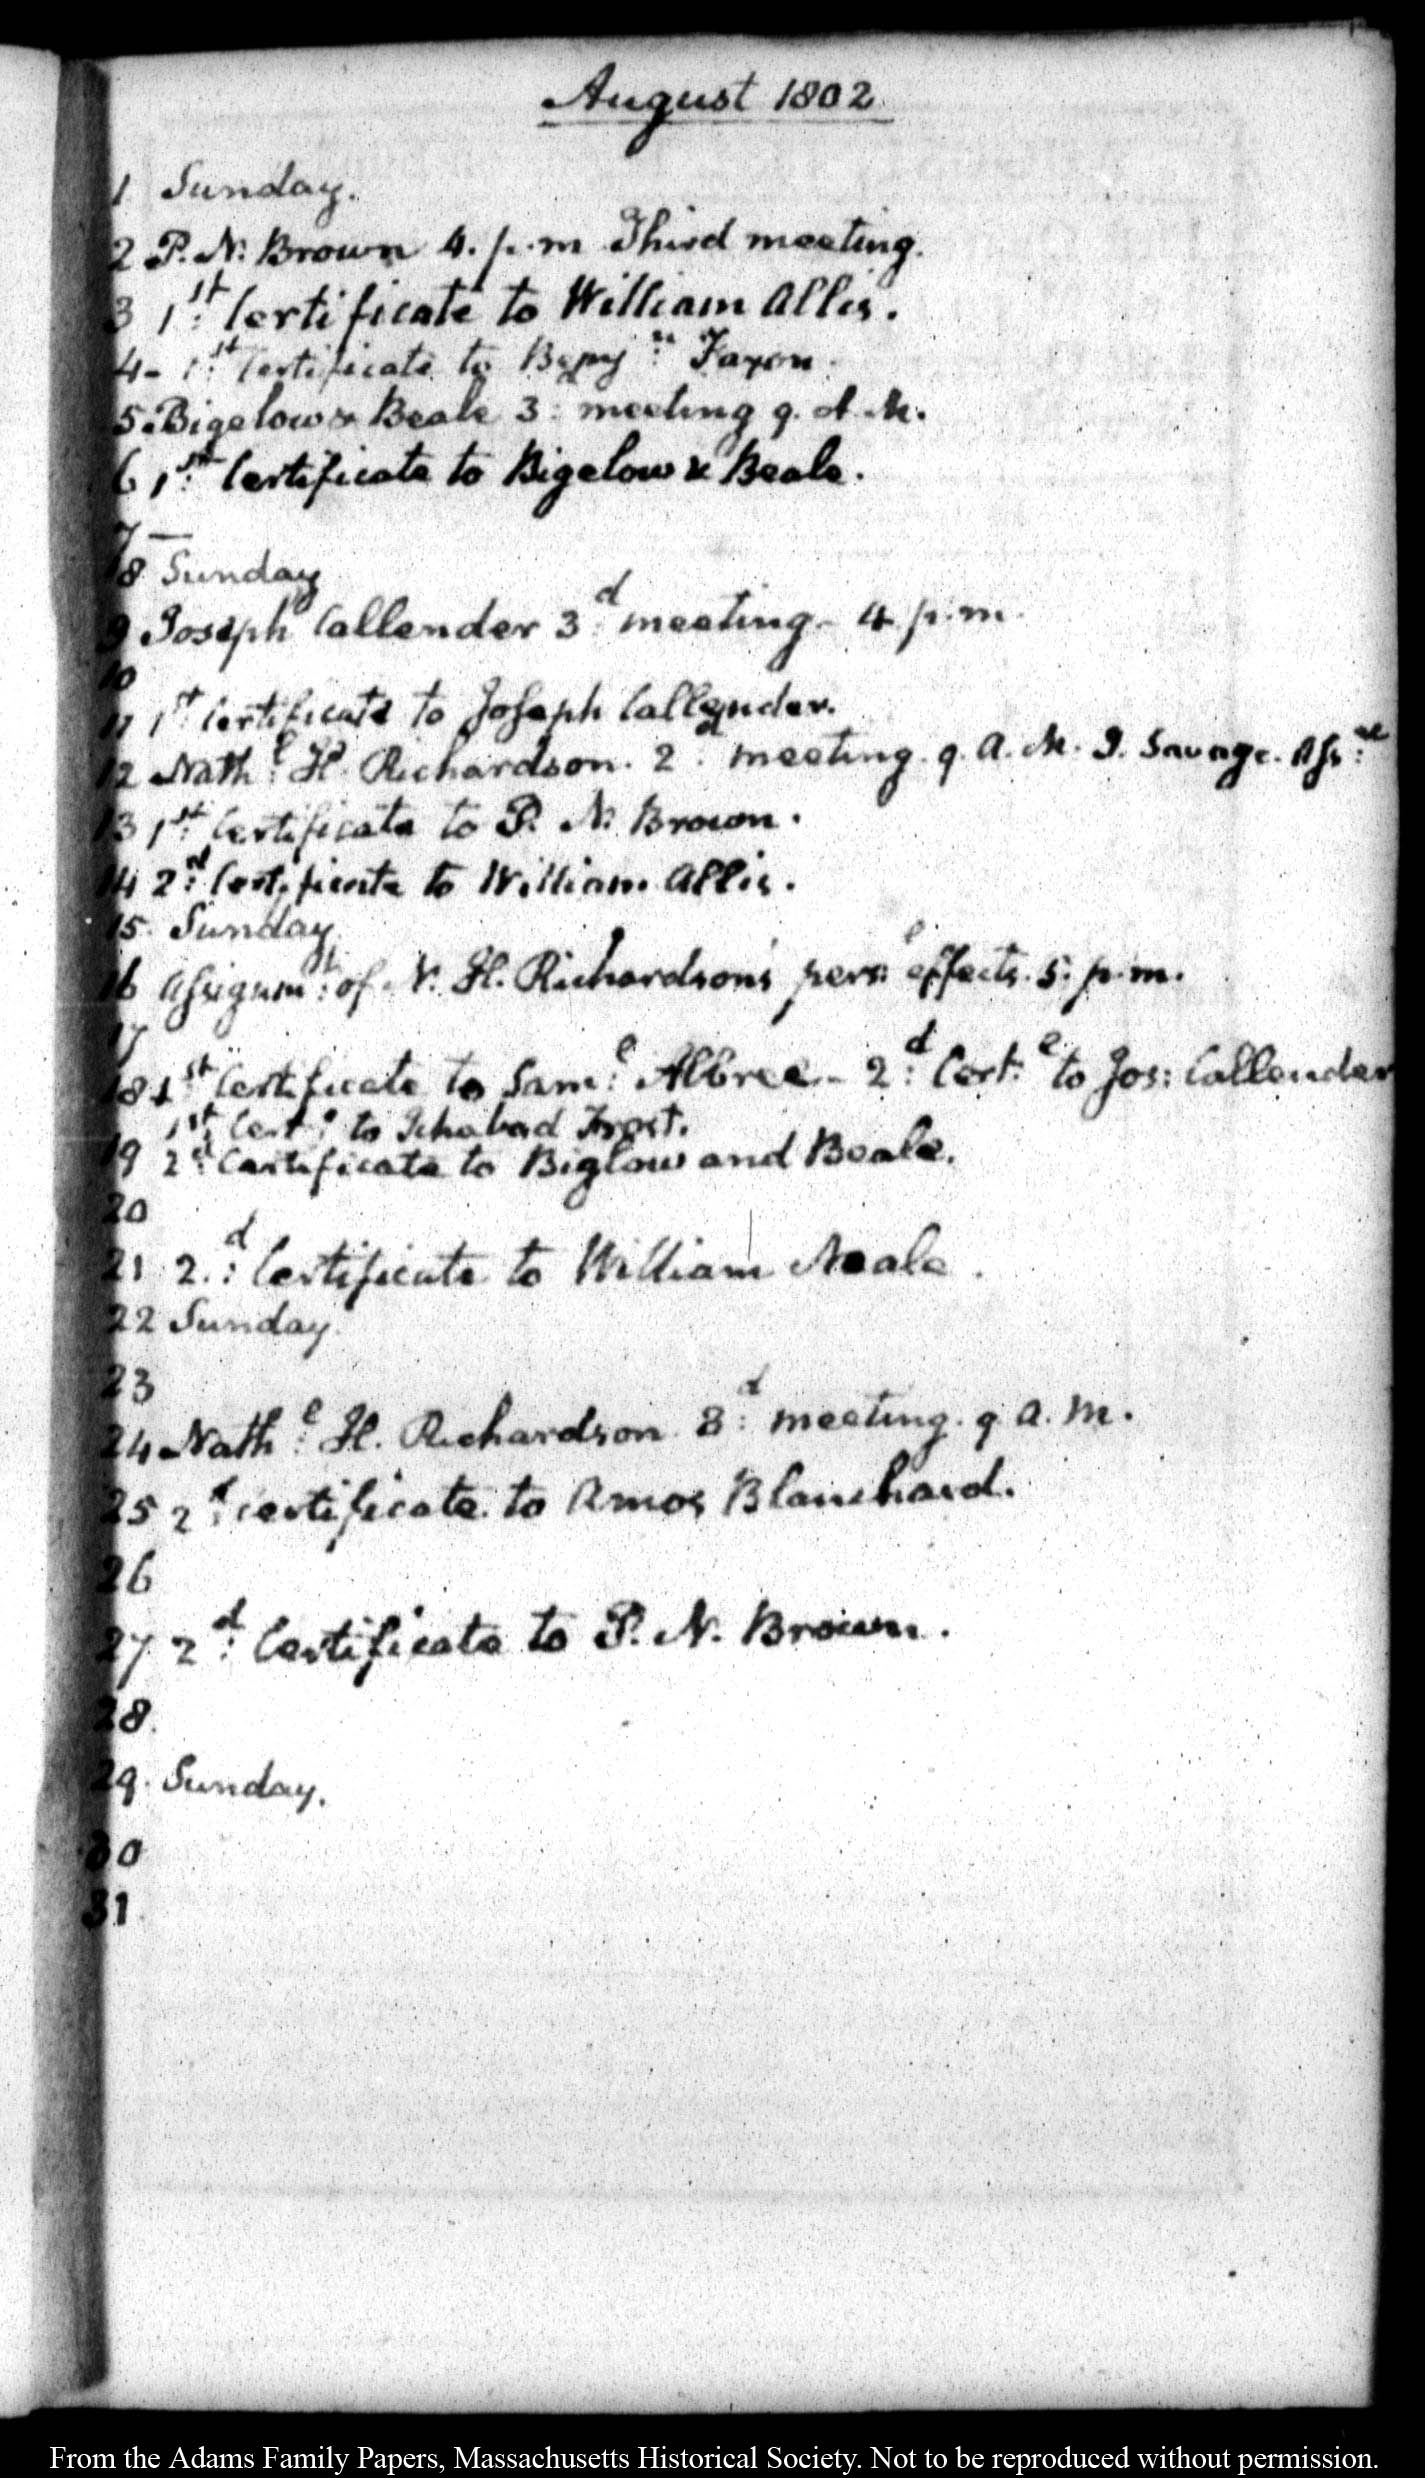 August 1802
1 Sunday.
2 P. N. Brown 4. p.m Third meeting.
3 1st: Certificate to William Allis.
4- 1st: Certificate to Benj:n Faxon.
5. Bigelow & Beale 3: meeting 9. A. M.
6 1st: Certificate to Bigelow & Beale.
7 —
8 Sunday
9 Joseph Callender 3d: meeting - 4 p.m.
10
11 1st Certificate to Joseph Callender.
12 Nath:l H. Richardson. 2d: meeting. 9. A. M. J. Savage. Ass:ee
13 1st: Certificate to P. N. Brown.
14 2d: Certificate to William Allis.
15. Sunday.
16 Assignm:t of N. H. Richardson's pers:l effects. 5. p.m.
17
18 1st: Certificate to Sam:l Albree - 2d: Cert:e to Jos: Callender
1st Cert:e to Ichabod Frost.
19 2d: Certificate to Biglow and Beale.
20
21 2.d: Certificate to William Neale.
22 Sunday.
23
24 Nath:l H. Richardson 3d: meeting. 9 A. M.
25 2d: certificate to Amos Blanchard.
26
27 2d: Certificate to P. N. Brown.
28.
29. Sunday.
30
31
From the Adams Family Papers, Massachusetts Historical Society. Not to be reproduced without permission.